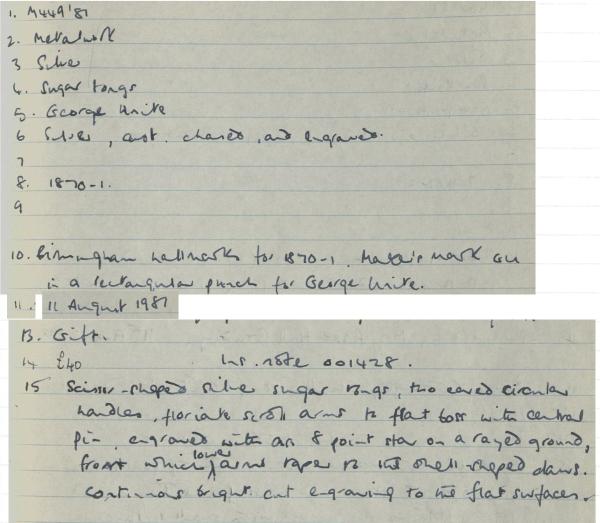 1. M449'87
2. Metalwork
3 Silver
4. Sugar tongs
5. George Unite
6 Silver, cast. chased, and engraved.
7
8. 1870-1.
9
10. Birmingham hallmarks for 1870-1. Maker's mark GU
in a rectangular punch for George Unite.
11. 11 August 1987
13. Gift.
14 £40 Ins. note 001428.
15 Scissor-shaped silver sugar tongs, two eared circular
handles, floriate scroll arms to flat boss with central
pin, engraved with an 8 point star on a rayed ground,
from which lower arms taper to the shell-shaped claws.
Continuous bright cut engraving to the flat surfaces.